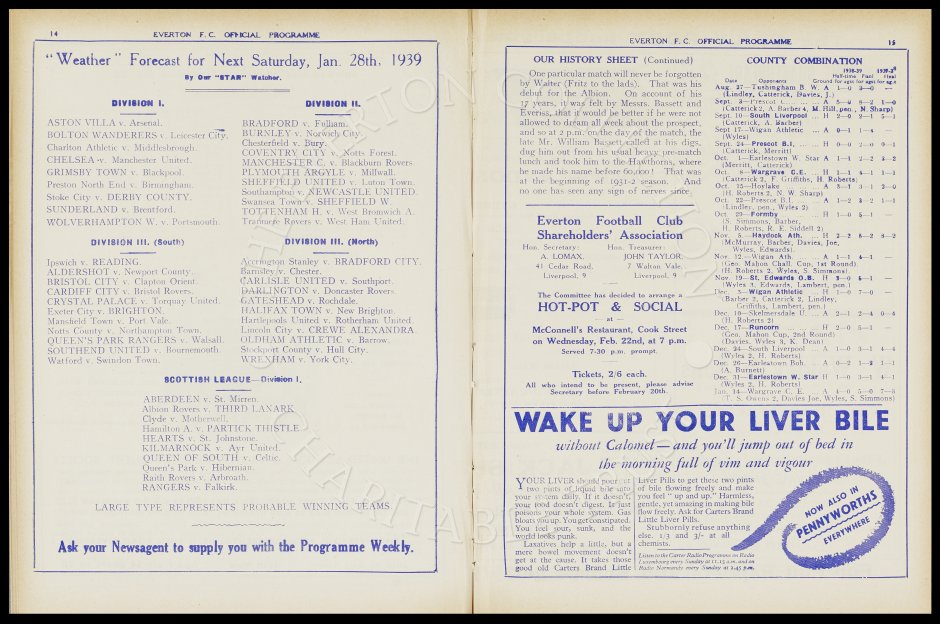 14
EVERTON F.C. OFFICIAL PROGRAMME
"Weather" Forecast for Next Saturday, Jan. 28th, 1939
By Our "STAR" Watcher.
DIVISION I.
ASTON VILLA v. Arsenal.
BOLTON WANDERERS v. Leicester City.
Charlton Athletic v. Middlesbrough.
CHELSEA v. Manchester United.
GRIMSBY TOWN v. Blackpool.
Preston North End v. Birmingham.
Stoke City v. DERBY COUNTY.
SUNDERLAND v. Brentford.
WOLVERHAMPTON W. v. Portsmouth.
DIVISION II.
BRADFORD v. Fulham.
BURNLEY v. Norwich City.
Chesterfield v. Bury.
COVENTRY CITY v. Notts Forest.
MANCHESTER C. v. Blackburn Rovers.
PLYMOUTH ARGYLE v. Millwall.
SHEFFIELD UNITED v. Luton Town.
Southampton v. NEWCASTLE UNITED.
Swansea Town v. SHEFFIELD W.
TOTTENHAM H. v. West Bromwich A.
Tranmere Rovers v. West Ham United.
DIVISION III. (South)
Ipswich v. READING.
ALDERSHOT v. Newport County.
BRISTOL CITY v. Clapton Orient.
CARDIFF CITY v. Bristol Rovers.
CRYSTAL PALACE v. Torquay United.
Exeter City v. BRIGHTON.
Mansfield Town v. Port Vale.
Notts County v. Northampton Town.
QUEEN'S PARK RANGERS v. Walsall.
SOUTHEND UNITED v. Bournemouth.
Watford v. Swindon Town.
DIVISION III. (North)
Accrington Stanley v. BRADFORD CITY.
Barnsley v. Chester.
CARLISLE UNITED v. Southport.
DARLINGTON v. Doncaster Rovers.
GATESHEAD v. Rochdale.
HALIFAX TOWN v. New Brighton.
Hartlepools United v. Rotherham United.
Lincoln City v. CREWE ALEXANDRA.
OLDHAM ATHLETIC v. Barrow.
Stockport County v. Hull City.
WREXHAM v. York City.
SCOTTISH LEAGUE—Division I.
ABERDEEN v. St. Mirren.
Albion Rovers v. THIRD LANARK
Clyde v. Motherwell.
Hamilton A. v. PARTICK THISTLE
HEARTS v. St. Johnstone.
KILMARNOCK v. Ayr United.
QUEEN OF SOUTH v. Celtic.
Queen's Park v. Hibernian.
Raith Rovers v. Arbroath.
RANGERS v. Falkirk.
LARGE TYPE REPRESENTS PROBABLE WINNING TEAMS
Ask your Newsagent to supply you with the Programme Weekly.
EVERTON F.C. OFFICIAL PROGRAMME
15
OUR HISTORY SHEET (Continued)
One particular match will never be forgotten
by Walter (Fritz to the lads). That was his
debut for the Albion. On account of his
17 years, it was felt by Messrs. Bassett and
Everiss, that it would be better if he were not
allowed to dream all week about the prospect,
and so at 2 p.m. on the day of the match, the
late Mr. William Bassett called at his digs,
dug him out from his usual heavy pre-match
lunch and took him to the Hawthorns, where
he made his name before 60,000! That was
at the beginning of 1931-2 season. And
no one has seen any sign of nerves since.
Everton Football Club
Shareholders' Association
Hon. Secretary: Hon. Treasurer:
A. LOMAX, JOHN TAYLOR,
41 Cedar Road, 7 Walton Vale,
Liverpool, 9 Liverpool, 9
The Committee has decided to arrange a
HOT-POT & SOCIAL
— at —
McConnell's Restaurant, Cook Street
on Wednesday, Feb. 22nd, at 7 p.m.
Served 7-30 p.m. prompt.
Tickets, 2/6 each.
All who intend to be present, please advise
Secretary before February 20th.
COUNTY COMBINATION
1938-39
Half-time Final
Date Opponents Ground for agst for agst
Aug. 27—Tushingham B. W. A
(Lindley, Catterick, Davies, J.)
Sept. 3—Prescot C. A
(Catterick 2, A. Barber 4, M. Hill, pen., N. Sharp)
Sept. 10—South Liverpool H
(Catterick, A. Barber)
Sept 17—Wigan Athletic A
(Wyles)
Sept. 24—Prescot B.I. H
(Catterick, Merritt)
Oct. 1—Earlestown W. Star A
(Merritt, Catterick)
Oct. 8—Wargrave C.E. H
(Catterick 2, F. Griffiths, H. Roberts)
Oct. 15—Hoylake A
(H. Roberts 2, N. W. Sharp)
Oct. 22—Prescot B.I. A
(Lindley, pen., Wyles 2)
Oct. 29—Formby H
(S. Simmons, Barber,
H. Roberts, R. E. Siddell 2)
Nov. 5—Haydock Ath. H
(McMurray, Barber, Davies, Joe,
Wyles, Edwards).
Nov. 12—Wigan Ath. A
(Geo. Mahon Chall. Cup, 1st Round).
(H. Roberts 2, Wyles, S. Simmons)
Nov. 19—St. Edwards O.B. H
(Wyles 3, Edwards, Lambert, pen.)
Dec. 3—Wigan Athletic H
(Barber 2, Catterick 2, Lindley,
Griffiths, Lambert, pen.)
Dec. 10—Skelmersdale U. A
(H. Roberts 2)
Dec. 17—Runcorn H
(Geo. Mahon Cup, 2nd Round)
(Davies, Wyles 3, K. Dean)
Dec. 24—South Liverpool A
(Wyles 2, H. Roberts)
Dec. 26—Earlestown Boh. A
(A. Burnett)
Dec. 31—Earlestown W. Star H
(Wyles 2, H. Roberts)
Jan. 14—Wargrave C. E. A
(T. S. Owens 2, Davies Joe, Wyles, S. Simmons)
WAKE UP YOUR LIVER BILE
without Calomel—and you'll jump out of bed in
the morning full of vim and vigour
YOUR LIVER should pour out
two pints of liquid bile into
your system daily. If it doesn't,
your food doesn't digest. It just
poisons your whole system. Gas
blouts you up. You get constipated.
You feel sour, sunk, and the
world looks punk.
Laxatives help a little, but a
mere bowel movement doesn't
get at the cause. It takes those
good old Carters Brand Little
Liver Pills to get these two pints
of bile flowing freely and make
you feel "up and up." Harmless,
gentle, yet amazing in making bile
flow freely. Ask for Carters Brand
Little Liver Pills.
Stubbornly refuse anything
else. 1/3 and 3/- at all
chemists.
Listen to the Carter Radio Programme on Radio
Luxembourg every Sunday at 11.15 a.m. and on
Radio Normandy every Sunday at 2.45 p.m.
NOW ALSO IN
PENNYWORTHS
EVERYWHERE